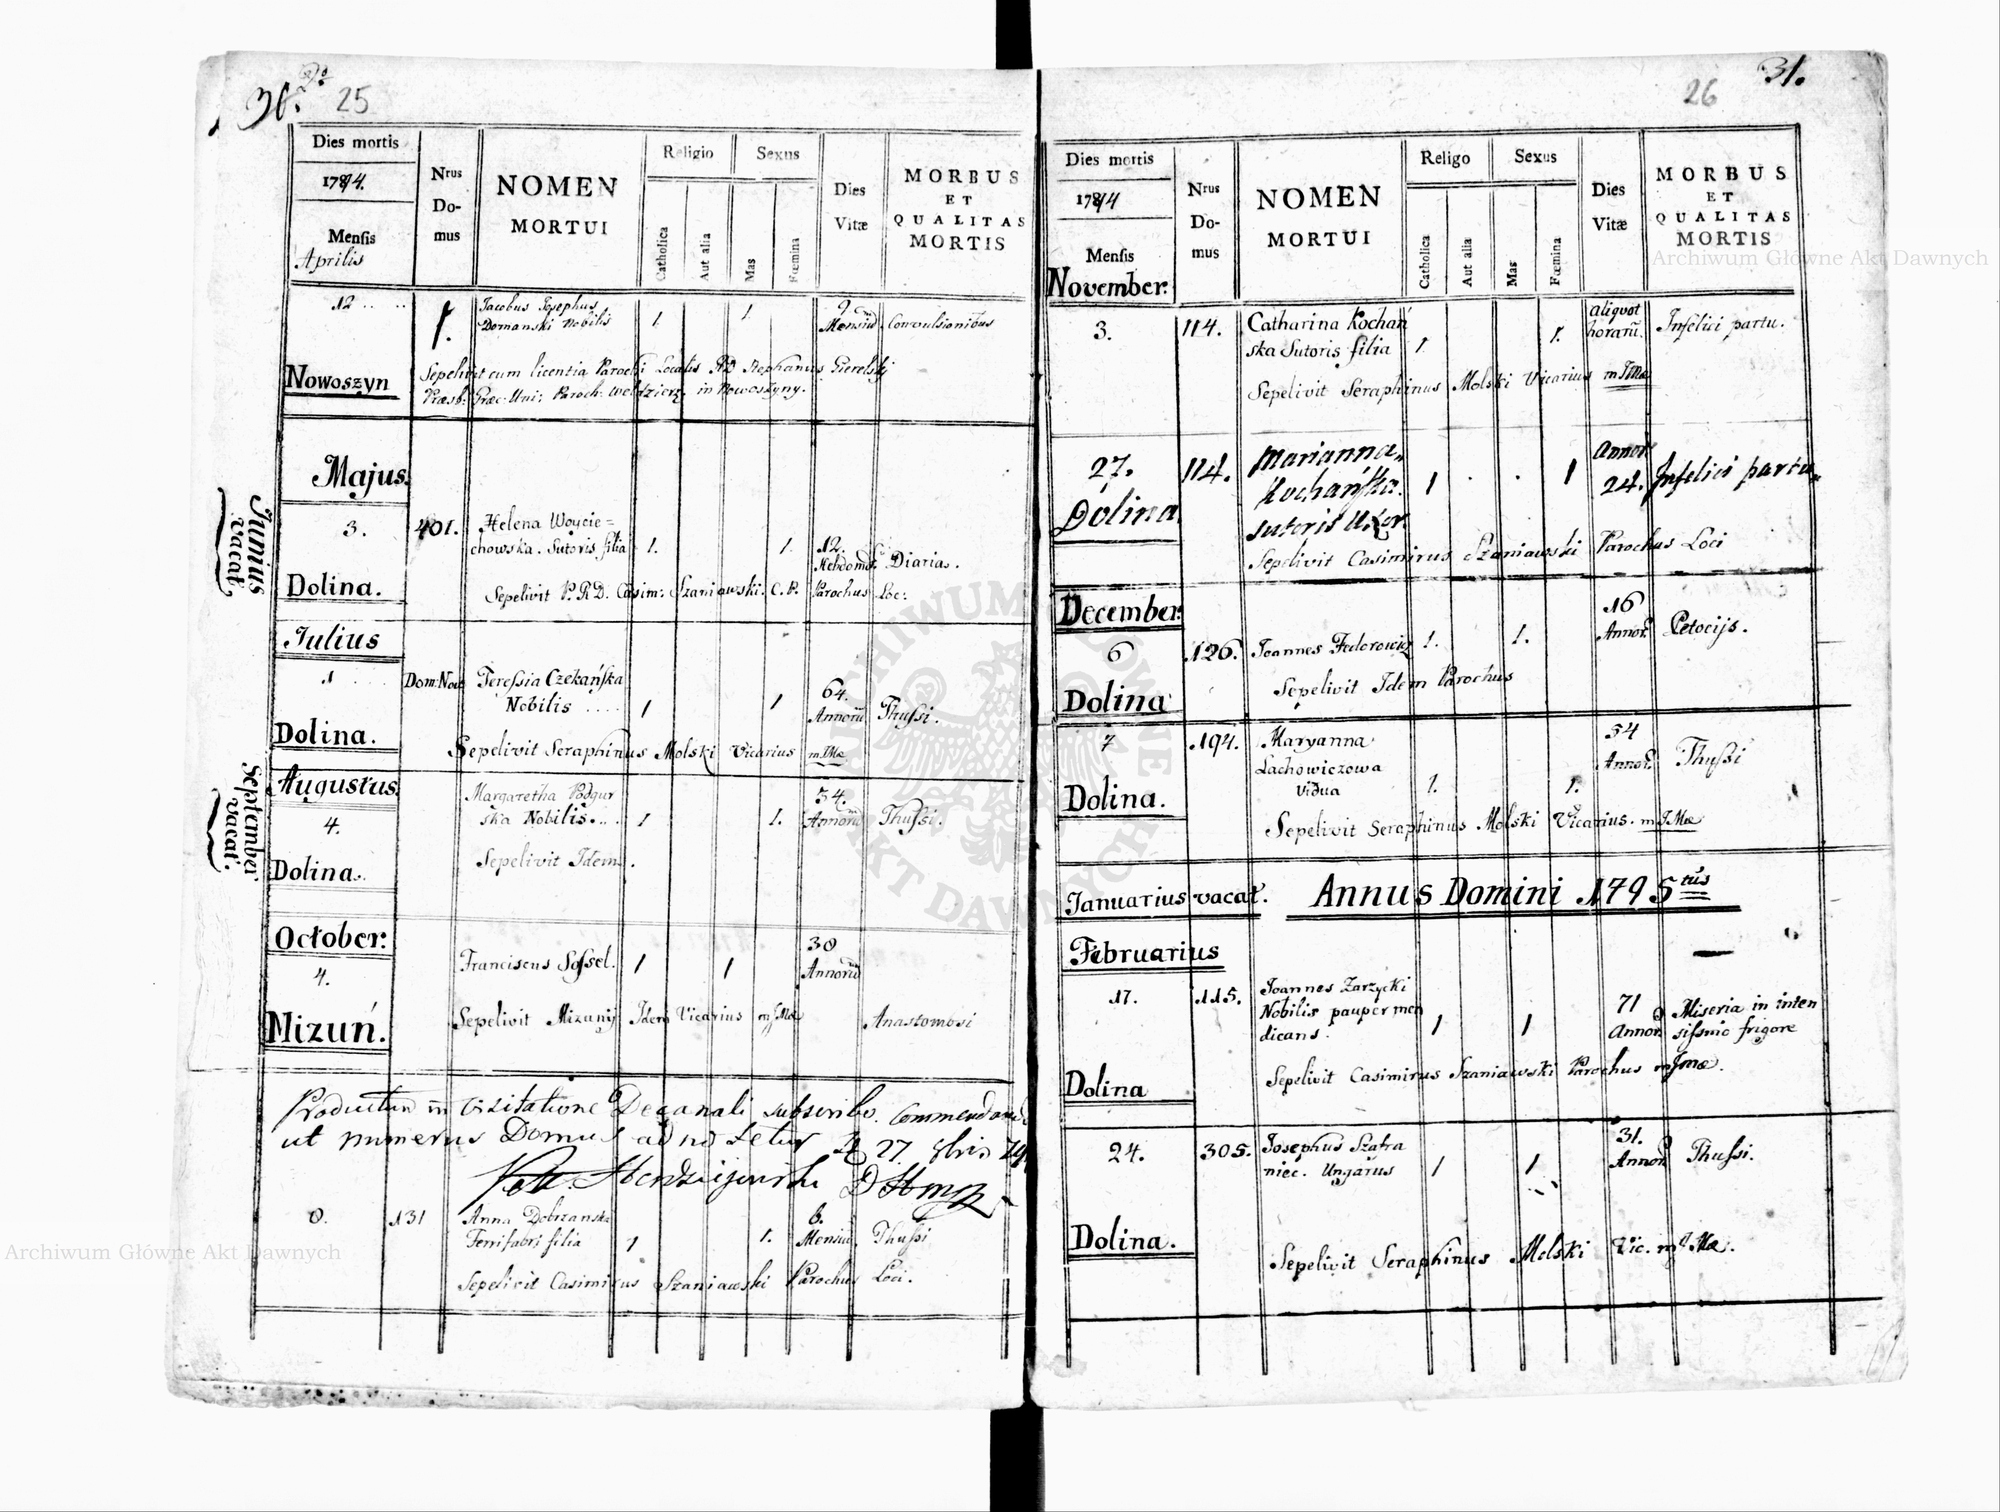 30.
25
Dies mortis
1794.
Mensis
Aprilis
Nrus
Do-
mus
NOMEN
MORTUI
Religio
Catholica
Aut alia
Sexus
Mas
Fœmina
Dies
Vitæ
MORBUS
ET
QUALITAS
MORTIS
12
1.
Jacobus Josephus
Domanski Nobilis
1.
1.
9
Mensiu
Convulsionibus
Nowoszyn
Sepelivit cum licentia Parochi Localis RD Stephanus Gierelskj
Præsb: Græc: Uni: Paroch: Weldzierz. in Nowoszyny.
Majus.
Junius
vacat
3.
401.
Helena Woycie=
chowska. Sutoris filia
1.
1.
12.
Hebdomad.
Diarias.
Dolina.
Sepelivit P.R.D. Casim: Szaniawski. C.P. Parochus Loc:
Julius
1
Dom: Nov
Teressia Czekańska
Nobilis
1
1
64.
Annorũ
Thussi.
Dolina.
Sepelivit Seraphinus Molski Vicarius mJMæ
Augustus.
September
vacat.
4.
Margaretha Podgur
ska Nobilis.
1
1.
54.
Annorũ
Thussi.
Dolina.
Sepelivit Idem.
October.
4.
Franciscus Sossel.
1
1
30
Annorũ
Mizuń.
Sepelivit Mizunij Idem Vicarius mJMæ
Anastomosi
Productum in Visitatione Decanali subscribo. Commendando
ut numerus Domus adnotetur D 27 8bris 79
8.
131
Anna Dobrzanska
Ferrifabri filia
1
1.
6.
Mensiũ.
Thussi
Sepelivit Casimirus Szaniawski Parochus Loci.
31.
26
Dies mortis
1794
Mensis
November.
Nrus
Do-
mus
NOMEN
MORTUI
Religo
Catholica
Aut alia
Sexus
Mas
Fœmina
Dies
Vitæ
MORBUS
ET
QUALITAS
MORTIS
3.
114.
Catharina Kochań
ska Sutoris filia
1
1.
aliquot
horarũ.
Infelici partu.
Sepelivit Seraphinus Molski Vicarius mJMæ
27.
114.
Marianna
Kochańska.
sutoris Uxor
1
1
Annor
24.
Infelici partu
Dolina
Sepelivit Casimirus Szaniawski Parochus Loci
December.
6
126.
Joannes Fedorowicz
1.
1.
16
Annor.
Petocijs.
Dolina
Sepelivit Idem Parochus
7
194.
Maryanna
Lachowiczowa
Vidua
1.
1.
54
Annor.
Thussi
Dolina.
Sepelivit Seraphinus Molski Vicarius. mJMæ
Januarius vacat.
Annus Domini 1795tus
Februarius
17.
115.
Joannes Zarzycki
Nobilis pauper men
dicans.
1
1
71
Annor.
Miseria in inten
sissmo frigore
Dolina
Sepelivit Casimirus Szaniawski Parochus mJmæ.
24.
305.
Josephus Szafra
niec. Ungarus
1
1
31.
Annor.
Thussi.
Dolina.
Sepelivit Seraphinus Molski Vic. mJMæ.
Archiwum Główne Akt Dawnych
Archiwum Główne Akt Dawnych
ARCHIWUM GŁÓWNE
AKT DAWNYCH